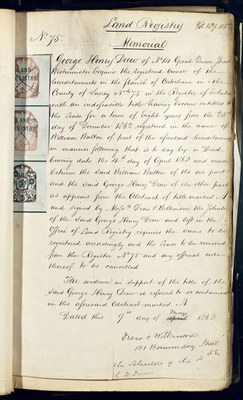 Land Registry
No 75.
Memorial
George Henry Drew of No 14 Great Queen Street
Westminster Esquire the registered owner of the
hereditaments in the Parish of Caterham in the
County of Surrey No 75 in the Register of Estates
with an indefeasible title having become entitled to
the Lease for a term of Eight years from the 25th
day of December 1862 registered in the name of
William Walton of part of the aforesaid hereditaments
in manner following that is to say by a Deed
bearing date the day of April 1863 and made
between the said William Walton of the one part
and the said George Henry Drew of the other part
as appears from the Abstract of title marked A
and signed by Messrs Drew & Wilkinson the Solicitors
of the said George Henry Drew and left in the
Office of Land Registry requires the same to be
registered accordingly and the Lease to be removed
from the Register No 75 and any official notice
thereof to be cancelled
The evidence in support of the title of the
said George Henry Drew is referred to or contained
in the aforesaid Abstract marked A
Dated this 9th day of May 1863
Drew & Wilkinson
151 Bermondsey Street
S.E.
the Solicitors of the sd
G. H. Drew
LAND REGISTRY
LAND REGISTRY